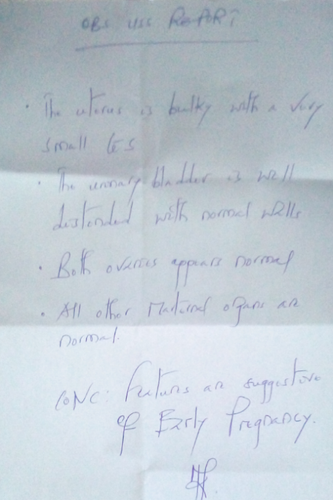 OBS USS REPORT
• The uterus is bulky with a very
small GS
• The urinary bladder is well
distended with normal walls
• Both ovaries appears normal
• All other Maternal organs are
normal.
CONC: Features are suggestive
of Early Pregnancy.